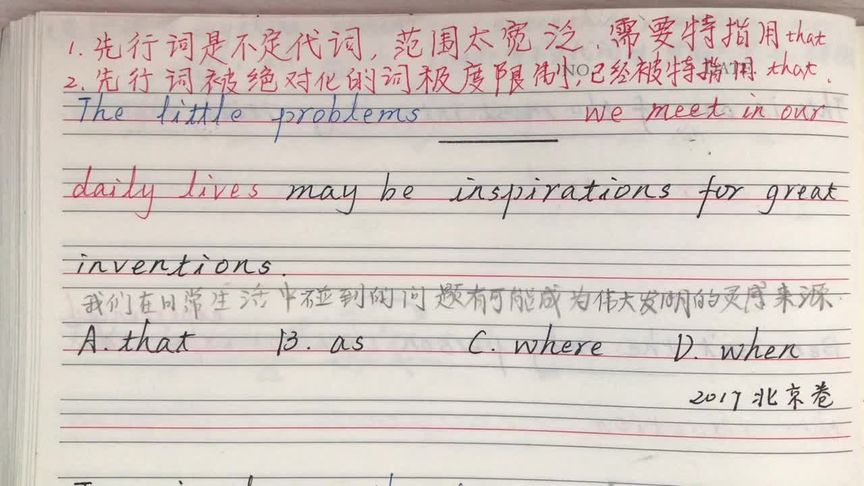 1. 先行词是不定代词, 范围太宽泛, 需要特指用that
2. 先行词被绝对化的词极度限制, 已经被特指用 that.
The little problems ______ we meet in our
daily lives may be inspirations for great
inventions.
我们在日常生活中碰到的问题有可能成为伟大发明的灵感来源.
A. that B. as C. where D. when
2017 北京卷